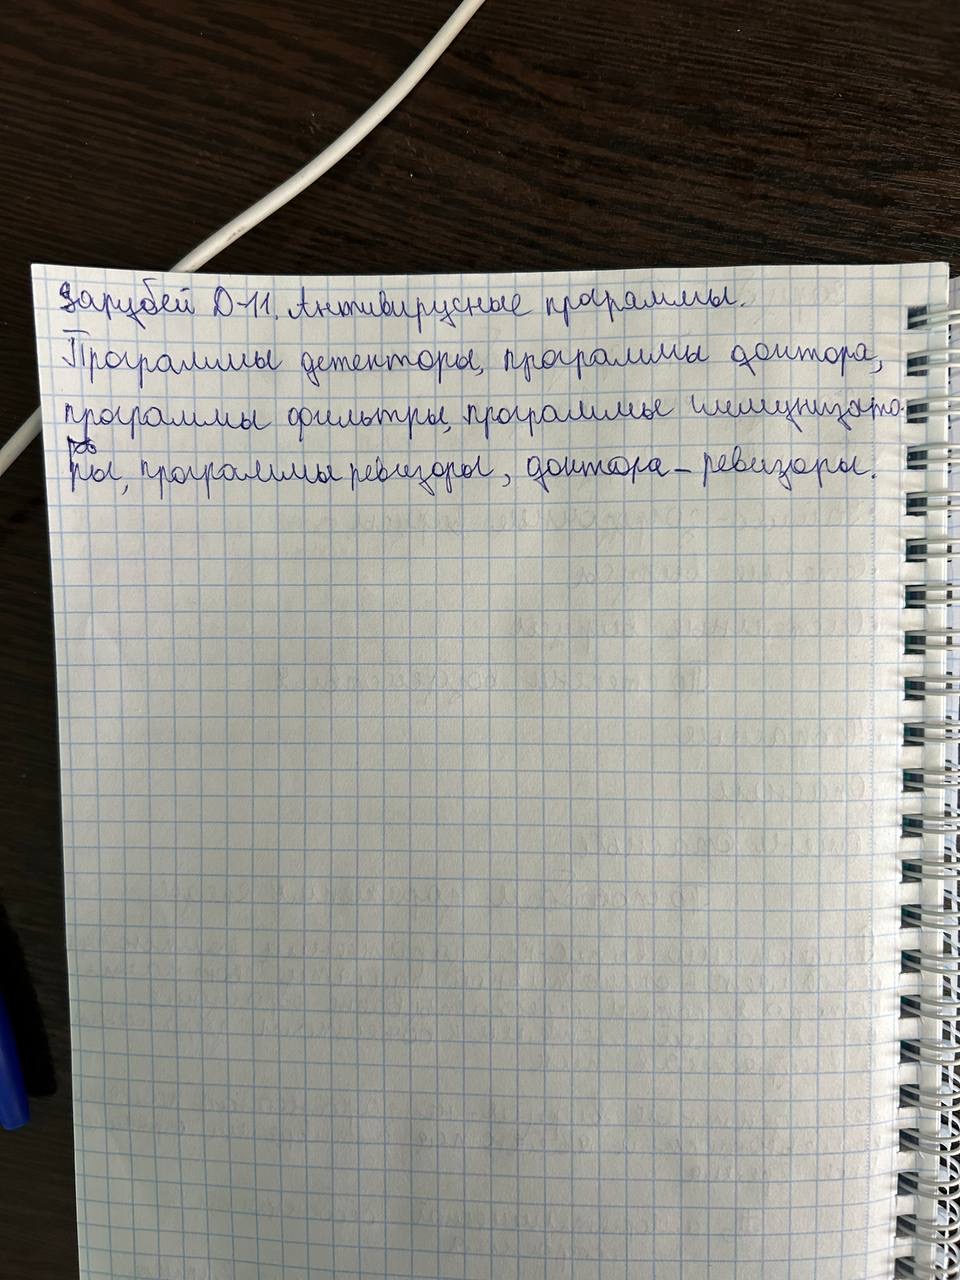 Зарубей D-11. Антивирусные программы.
Программы детекторы, программы доктора,
программы фильтры, программы иммунизато-
ры, программы ревизоры, доктора - ревизоры.